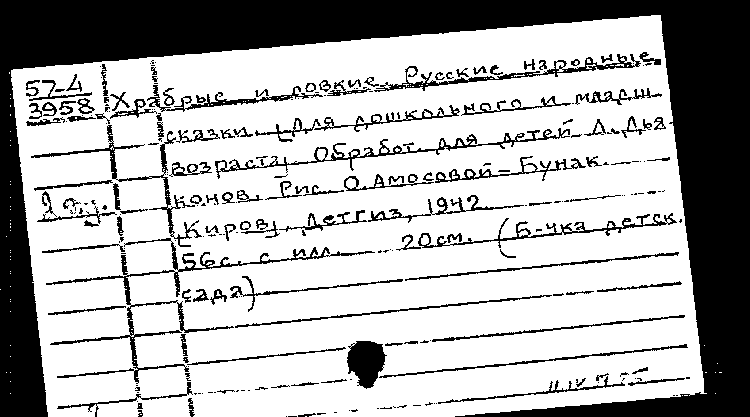 57-4
3958
Храбрые и ловкие. Русские народные
сказки. [Для дошкольного и младш.
возраста]. Обработ. для детей Л. Дья-
конов. Рис. О. Амосовой-Бунак.
[Киров], Детгиз, 1942
56с. с илл. 20см. (Б-чка детск.
сада)